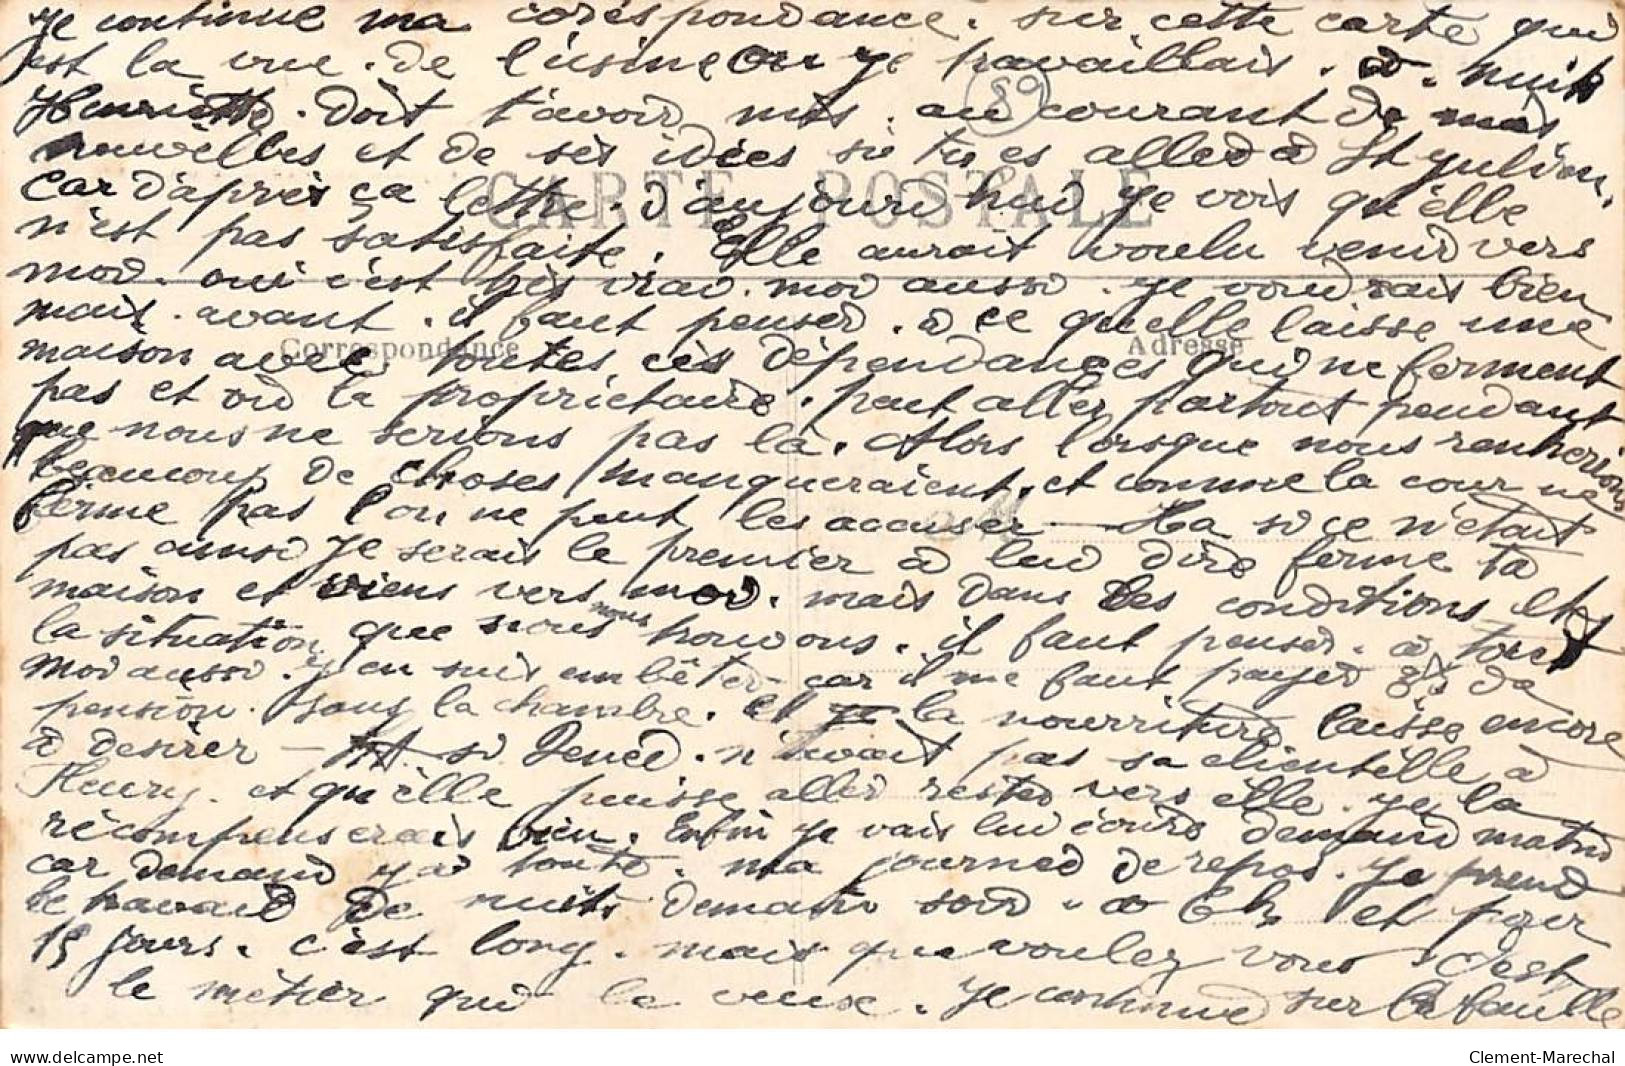 je continue ma corespondance. sur cette carte qui
est la vue. de l'usine ou je travaillais. a. nuit
Henriette. Doit t'avoir mis. au courant de mes
nouvelles et de ses idées si tu es aller a St Julien.
Car d'après ça lettre. d'aujourd hui je vois qu'elle
n'est pas satisfaite. Elle aurait voulu venir vers
moi. oui c'est très vrai. moi aussi. je voudrais bien
mais. avant. il faut penser. a ce qu'elle laisse une
maison avec. toutes ces dépendances qui ne ferment
pas et où la propriétaire. peut aller partout pendant
que nous ne serions pas là. Alors lorsque nous rentrerions
beaucoup de choses manqueraient. et comme la cour ne
ferme pas l'on ne peut les accuser — Ha si ce n'était
pas ainsi je serais le premier à lui dire ferme ta
maison et viens vers moi. mais dans les conditions et
la situation que nous nous trouvons. il faut penser. a tout
Moi aussi. j'en suis embêter car il me faut payer de
pension. sans la chambre. et la nourriture laisse encore
à desirer — si Renée. n'avait pas sa clientèlle à
Fleury. et qu'èlle puisse aller rester vers èlle. je la
récompenserais bien. Enfin je vais lui écrire demain matin
car demain j'ai toute. ma journée de repos. Je prend
le travail de nuit demain soir. a 6 h et pour
15 jours. c'est long. mais que voulez vous. C'est
le métier qui le veux. Je continue sur la feuille
CARTE POSTALE
Correspondance
Adresse
89
delcampe.net
Clement-Marechal